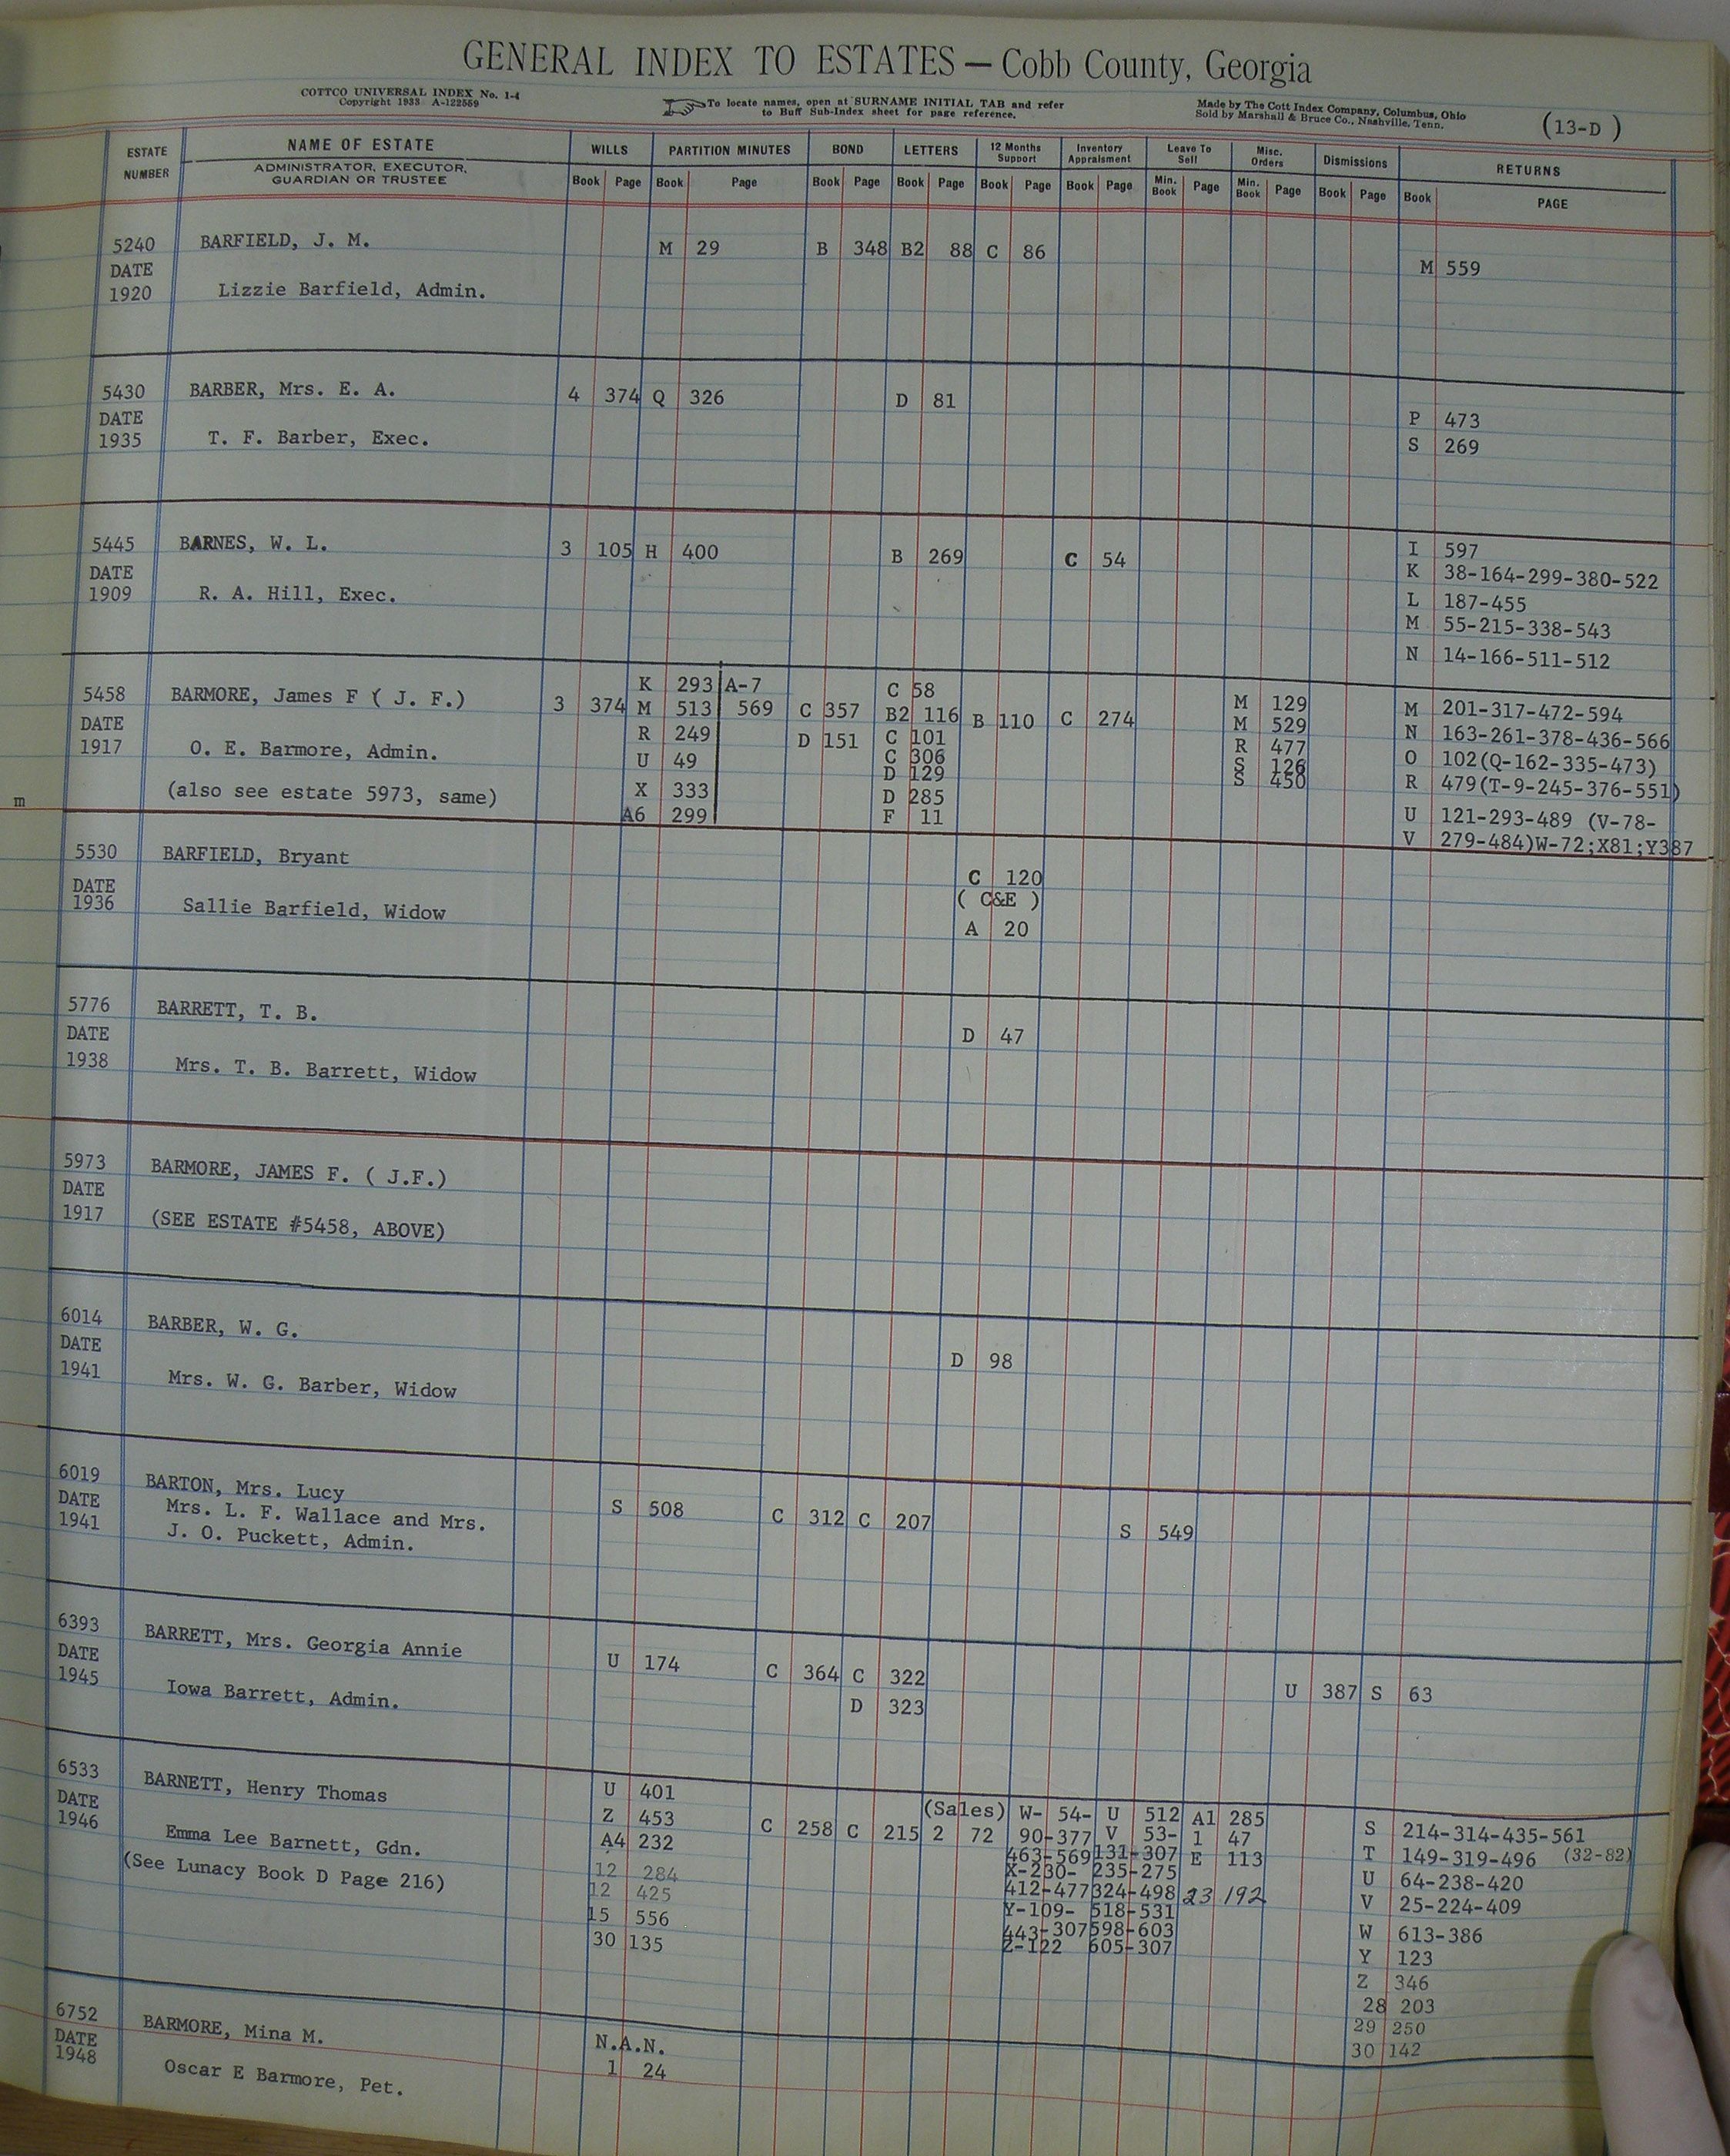 GENERAL INDEX TO ESTATES — Cobb County, Georgia
COTTCO UNIVERSAL INDEX No. 1-4
Copyright 1933 A-122559
To locate names, open at SURNAME INITIAL TAB and refer
to Buff Sub-Index sheet for page reference.
Made by The Cott Index Company, Columbus, Ohio
Sold by Marshall & Bruce Co., Nashville, Tenn.
(13-D)
ESTATE NUMBER NAME OF ESTATE WILLS PARTITION MINUTES BOND LETTERS 12 Months Support Inventory Appraisment Leave To Sell Misc. Orders Dismissions RETURNS
ADMINISTRATOR, EXECUTOR, GUARDIAN OR TRUSTEE Book Page Book Page Book Page Book Page Book Page Book Page Min. Book Page Min. Book Page Book Page Book PAGE
5240 BARFIELD, J. M. M 29 B 348 B2 88 C 86
DATE M 559
1920 Lizzie Barfield, Admin.
5430 BARBER, Mrs. E. A. 4 374 Q 326 D 81
DATE P 473
1935 T. F. Barber, Exec. S 269
5445 BARNES, W. L. 3 105 H 400 B 269 C 54 I 597
DATE K 38-164-299-380-522
1909 R. A. Hill, Exec. L 187-455
M 55-215-338-543
N 14-166-511-512
K 293 A-7 C 58
5458 BARMORE, James F ( J. F.) 3 374 M 513 569 C 357 B2 116 B 110 C 274 M 129 M 201-317-472-594
DATE R 249 D 151 C 101 M 529 N 163-261-378-436-566
1917 O. E. Barmore, Admin. U 49 C 306 R 477 O 102(Q-162-335-473)
D 129 S 126
(also see estate 5973, same) X 333 D 285 S 450 R 479(T-9-245-376-551)
m
A6 299 F 11 U 121-293-489 (V-78-
V 279-484)W-72;X81;Y387
5530 BARFIELD, Bryant C 120
DATE ( C&E )
1936 Sallie Barfield, Widow A 20
5776 BARRETT, T. B. D 47
DATE
1938 Mrs. T. B. Barrett, Widow
5973 BARMORE, JAMES F. ( J.F.)
DATE
1917 (SEE ESTATE #5458, ABOVE)
6014 BARBER, W. G. D 98
DATE
1941 Mrs. W. G. Barber, Widow
6019 BARTON, Mrs. Lucy
DATE Mrs. L. F. Wallace and Mrs. S 508 C 312 C 207 S 549
1941 J. O. Puckett, Admin.
6393 BARRETT, Mrs. Georgia Annie
DATE U 174 C 364 C 322 U 387 S 63
1945 Iowa Barrett, Admin. D 323
6533 BARNETT, Henry Thomas U 401 (Sales) W- 54- U 512 A1 285 S 214-314-435-561
DATE Z 453 C 258 C 215 2 72 90-377 V 53- 1 47 T 149-319-496 (32-82)
1946 Emma Lee Barnett, Gdn. A4 232 463-569 131-307 E 113 U 64-238-420
(See Lunacy Book D Page 216) 12 284 X-230- 235-275 V 25-224-409
12 425 412-477 324-498 23 192
15 556 Y-109- 518-531 W 613-386
30 135 443-307 598-603 Y 123
Z-122 605-307 Z 346
28 203
29 250
30 142
6752 BARMORE, Mina M. N.A.N.
DATE 1 24
1948 Oscar E Barmore, Pet.